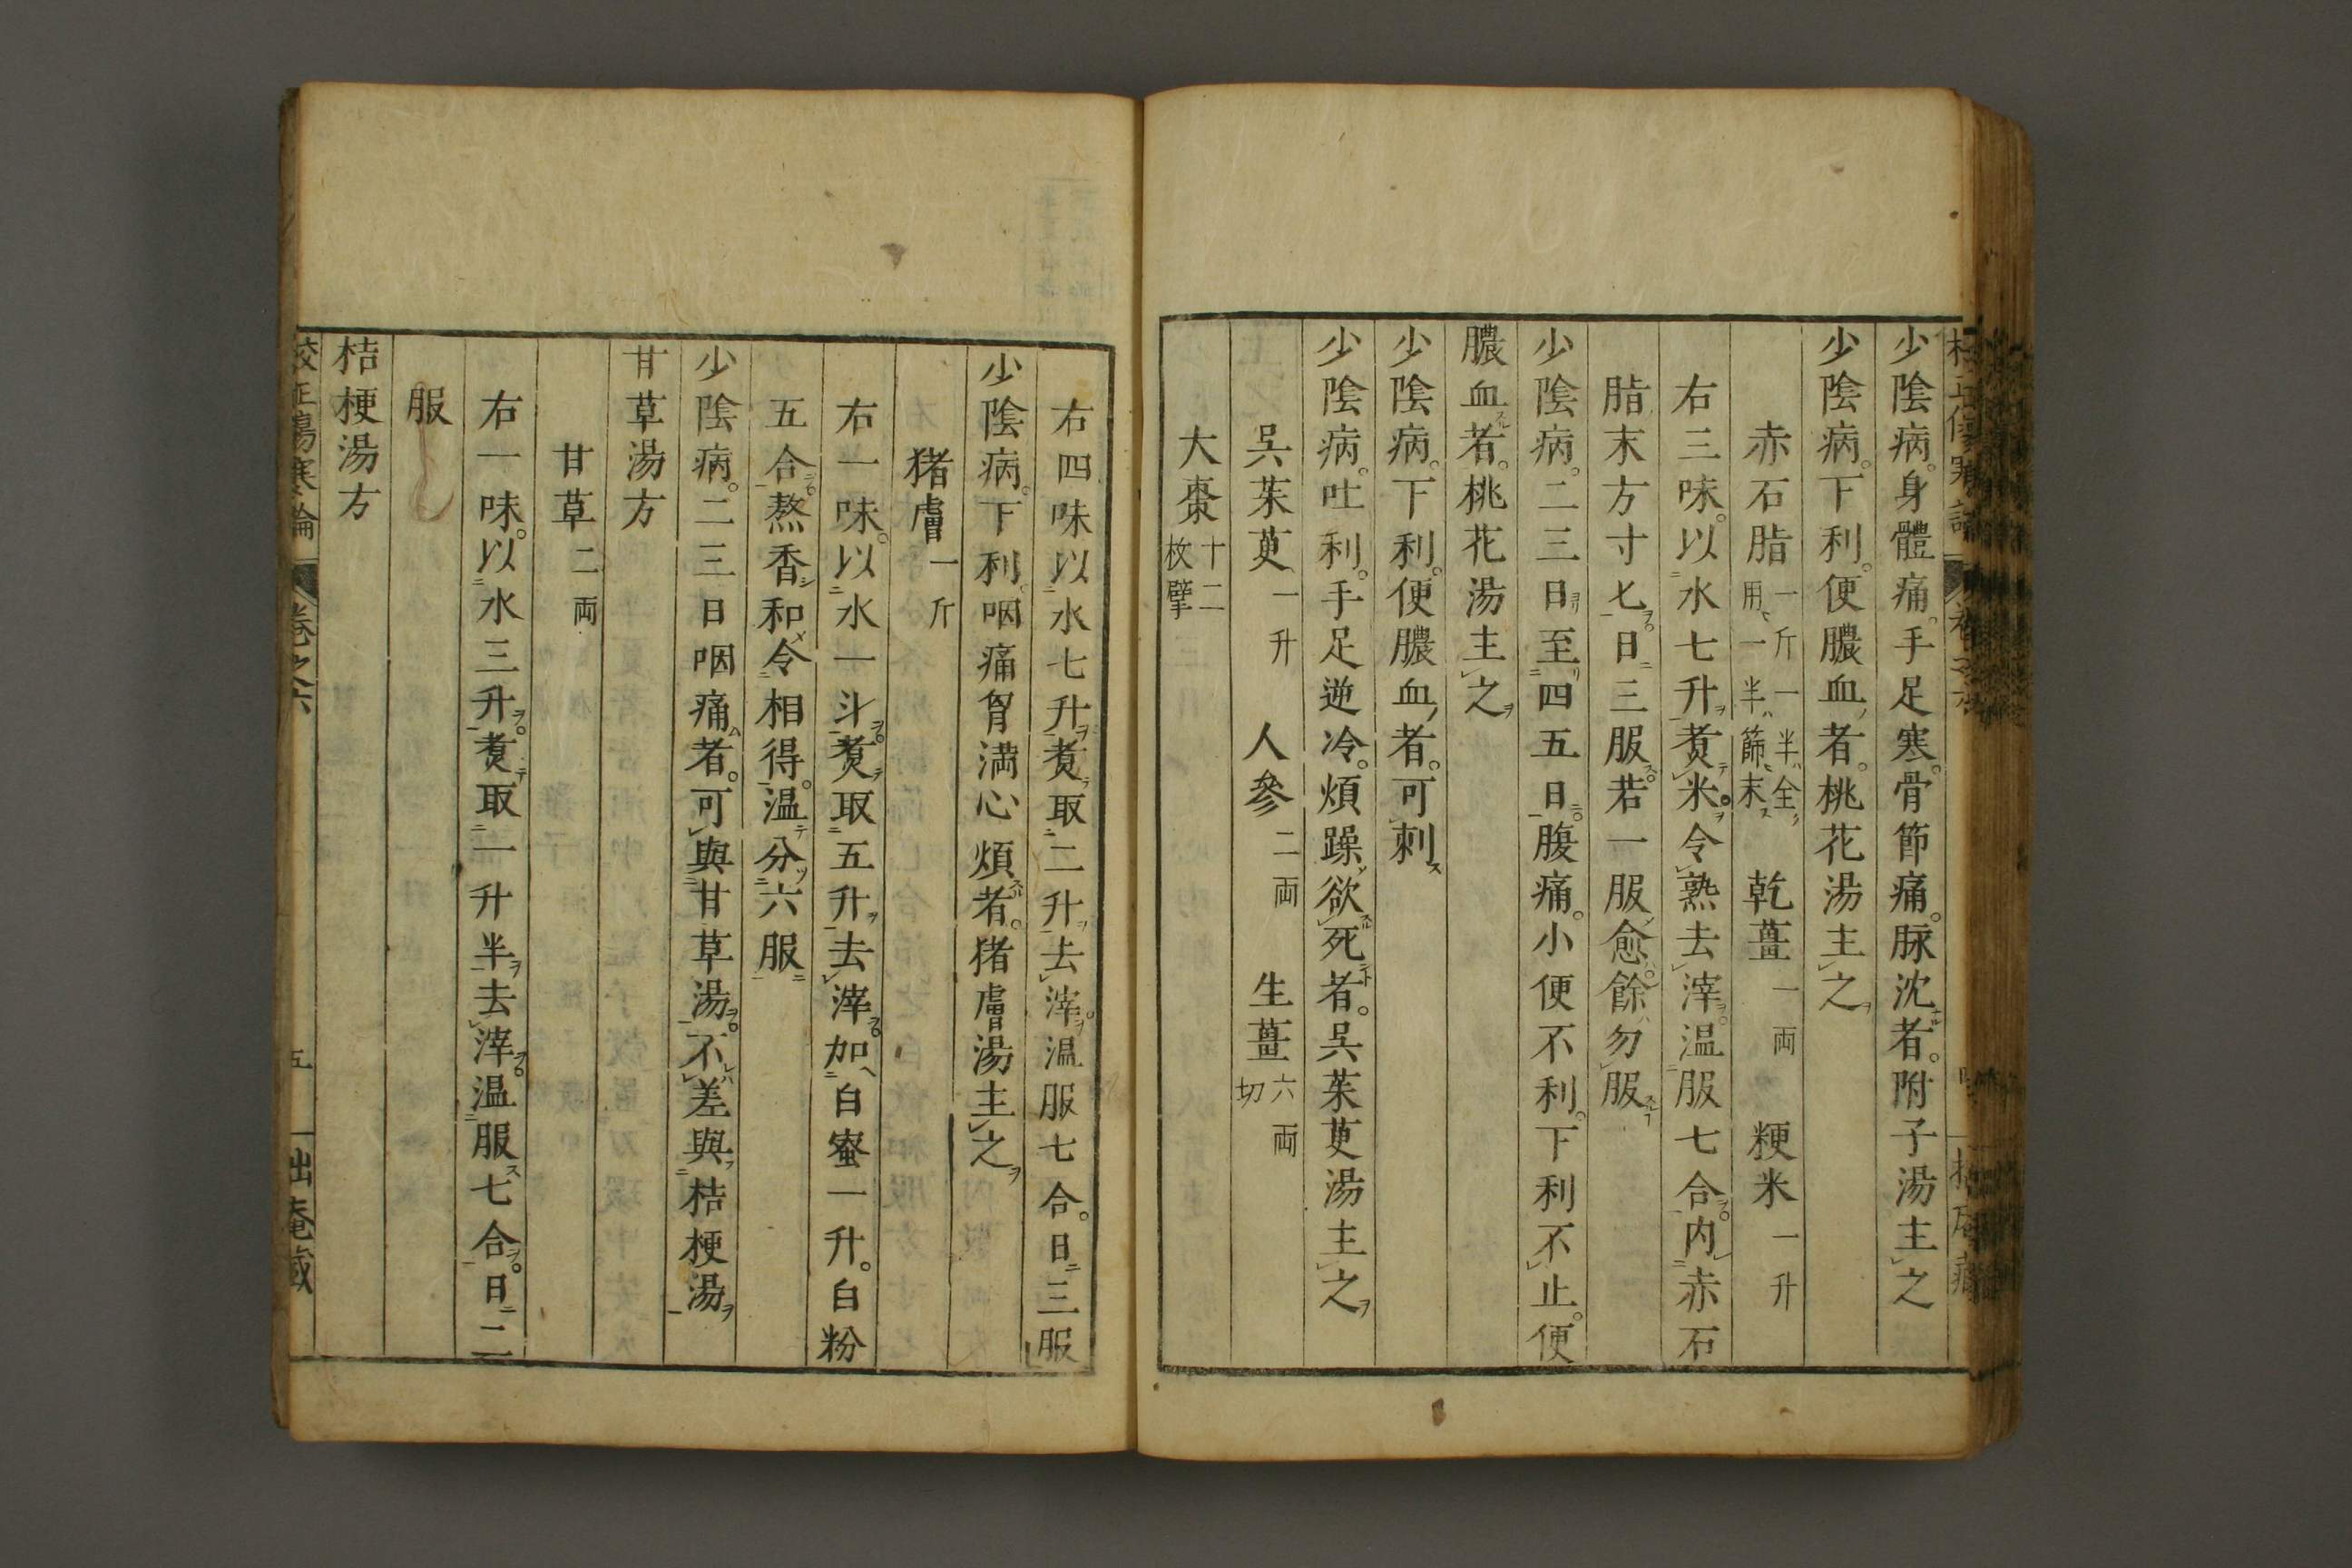 少陰病。身體痛。手足寒。骨節痛。脉沈者。附子湯主之
少陰病。下利。便膿血者。桃花湯主之
赤石脂一斤一半全用一半篩末 乾薑一両 粳米一升
右三味。以水七升煑米。令熟去滓。温服七合。内赤石
脂末方寸匕。日三服。若一服愈。餘勿服
少陰病。二三日至四五日。腹痛。小便不利。下利不止。便
膿血者。桃花湯主之
少陰病。下利。便膿血者。可刺
少陰病。吐利。手足逆冷。煩躁欲死者。呉茱萸湯主之
呉茱萸一升 人參二両 生薑六両切
大棗十二枚擘
右四味以水七升煑取二升去滓。温服七合。日三服
少陰病。下利。咽痛胷満心煩者。猪膚湯主之
猪膚一斤
右一味。以水一斗。煑取五升去滓。加白蜜一升。白粉
五合。熬香和令相得。温分六服
少陰病。二三日咽痛者。可與甘草湯。不差與桔梗湯
甘草湯方
甘草二両
右一味。以水三升。煑取一升半去滓。温服七合。日二
服
桔梗湯方
校正傷寒論 卷之六 五 拙庵藏